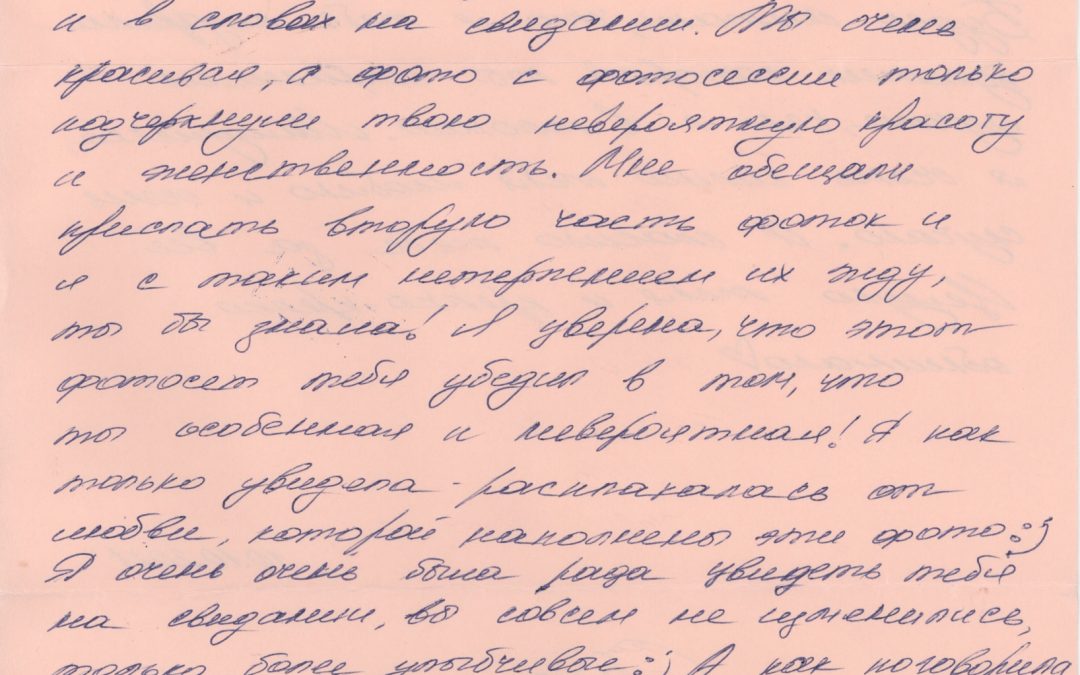 и в словах на свидании. Ты очень
красивая, а фото с фотосессии только
подчеркнули твою невероятную красоту
и женственность. Мне обещали
прислать вторую часть фоток и
я с таким нетерпением их жду,
ты бы знала! Я уверена, что этот
фотосет тебя убедил в том, что
ты особенная и невероятная! Я как
только увидела - расплакалась от
любви, которой наполнены эти фото :)
Я очень очень была рада увидеть тебя
на свидании, вы совсем не изменились,
только более улыбчивые :) А как поговорила